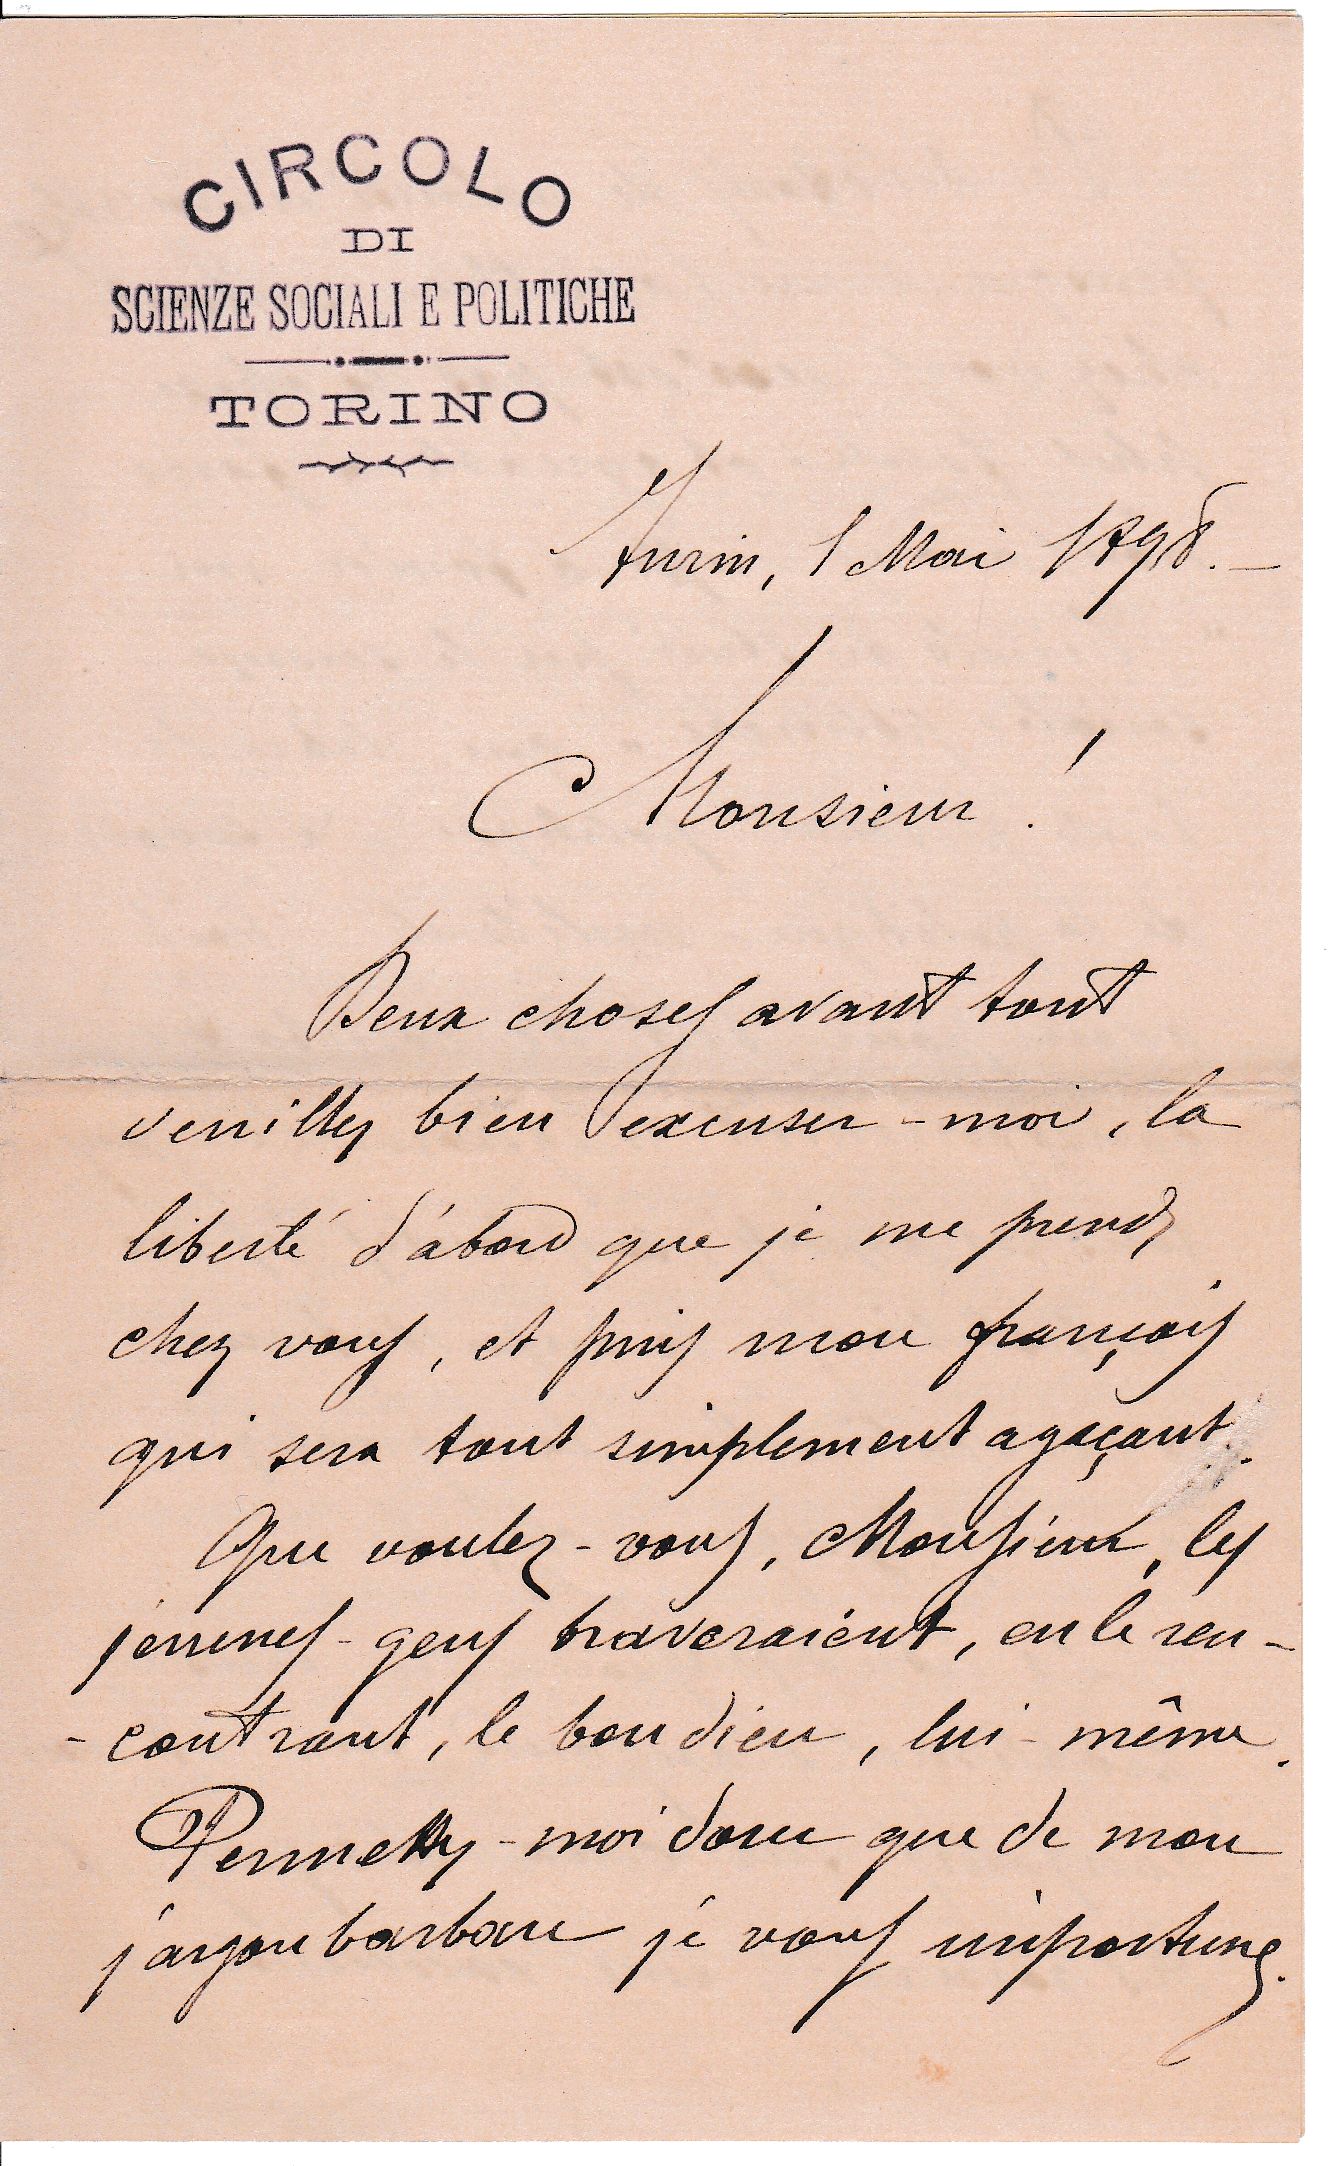 CIRCOLO
DI
SCIENZE SOCIALI E POLITICHE
TORINO
Turin, 1 Mai 1898. –
Monsieur !
Deux choses avant tout
veuillez bien excuser-moi, la
liberté d'abord que je me prends
chez vous, et puis mon français
qui sera tout simplement agaçant.
Que voulez-vous, Monsieur, les
jeunes-gens braveraient, en le ren-
-contrant, le bon dieu, lui-même.
Permettez-moi donc que de mon
jargon barbare je vous importune.